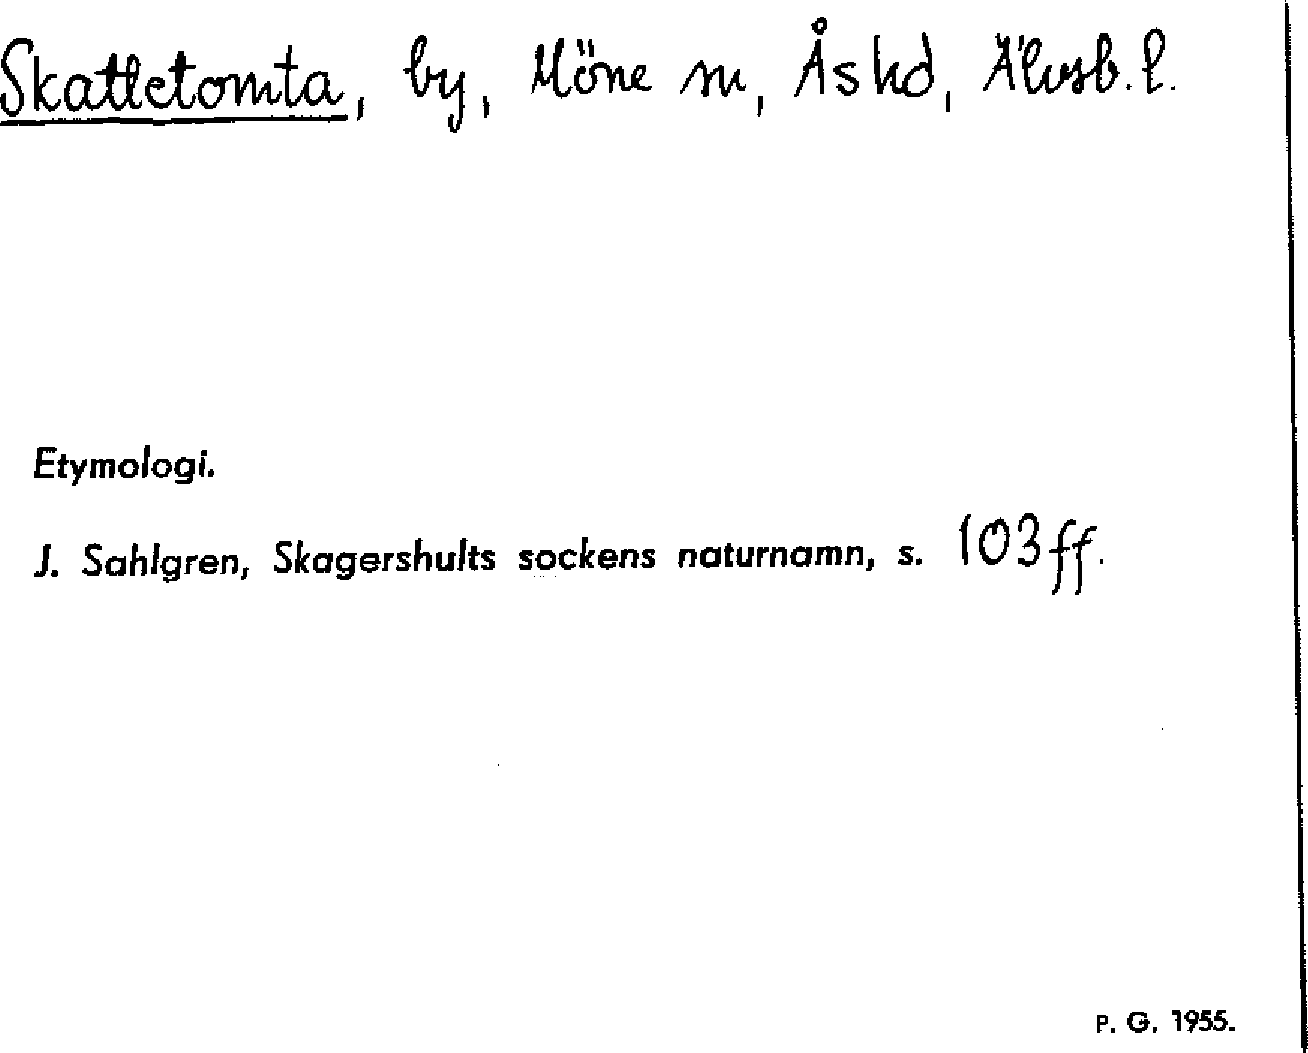 Skattetomta, by, Möne sn, Ås hd, Älvsb. l.
Etymologi.
J. Sahlgren, Skagershults sockens naturnamn, s. 103 ff.
P. G. 1955.